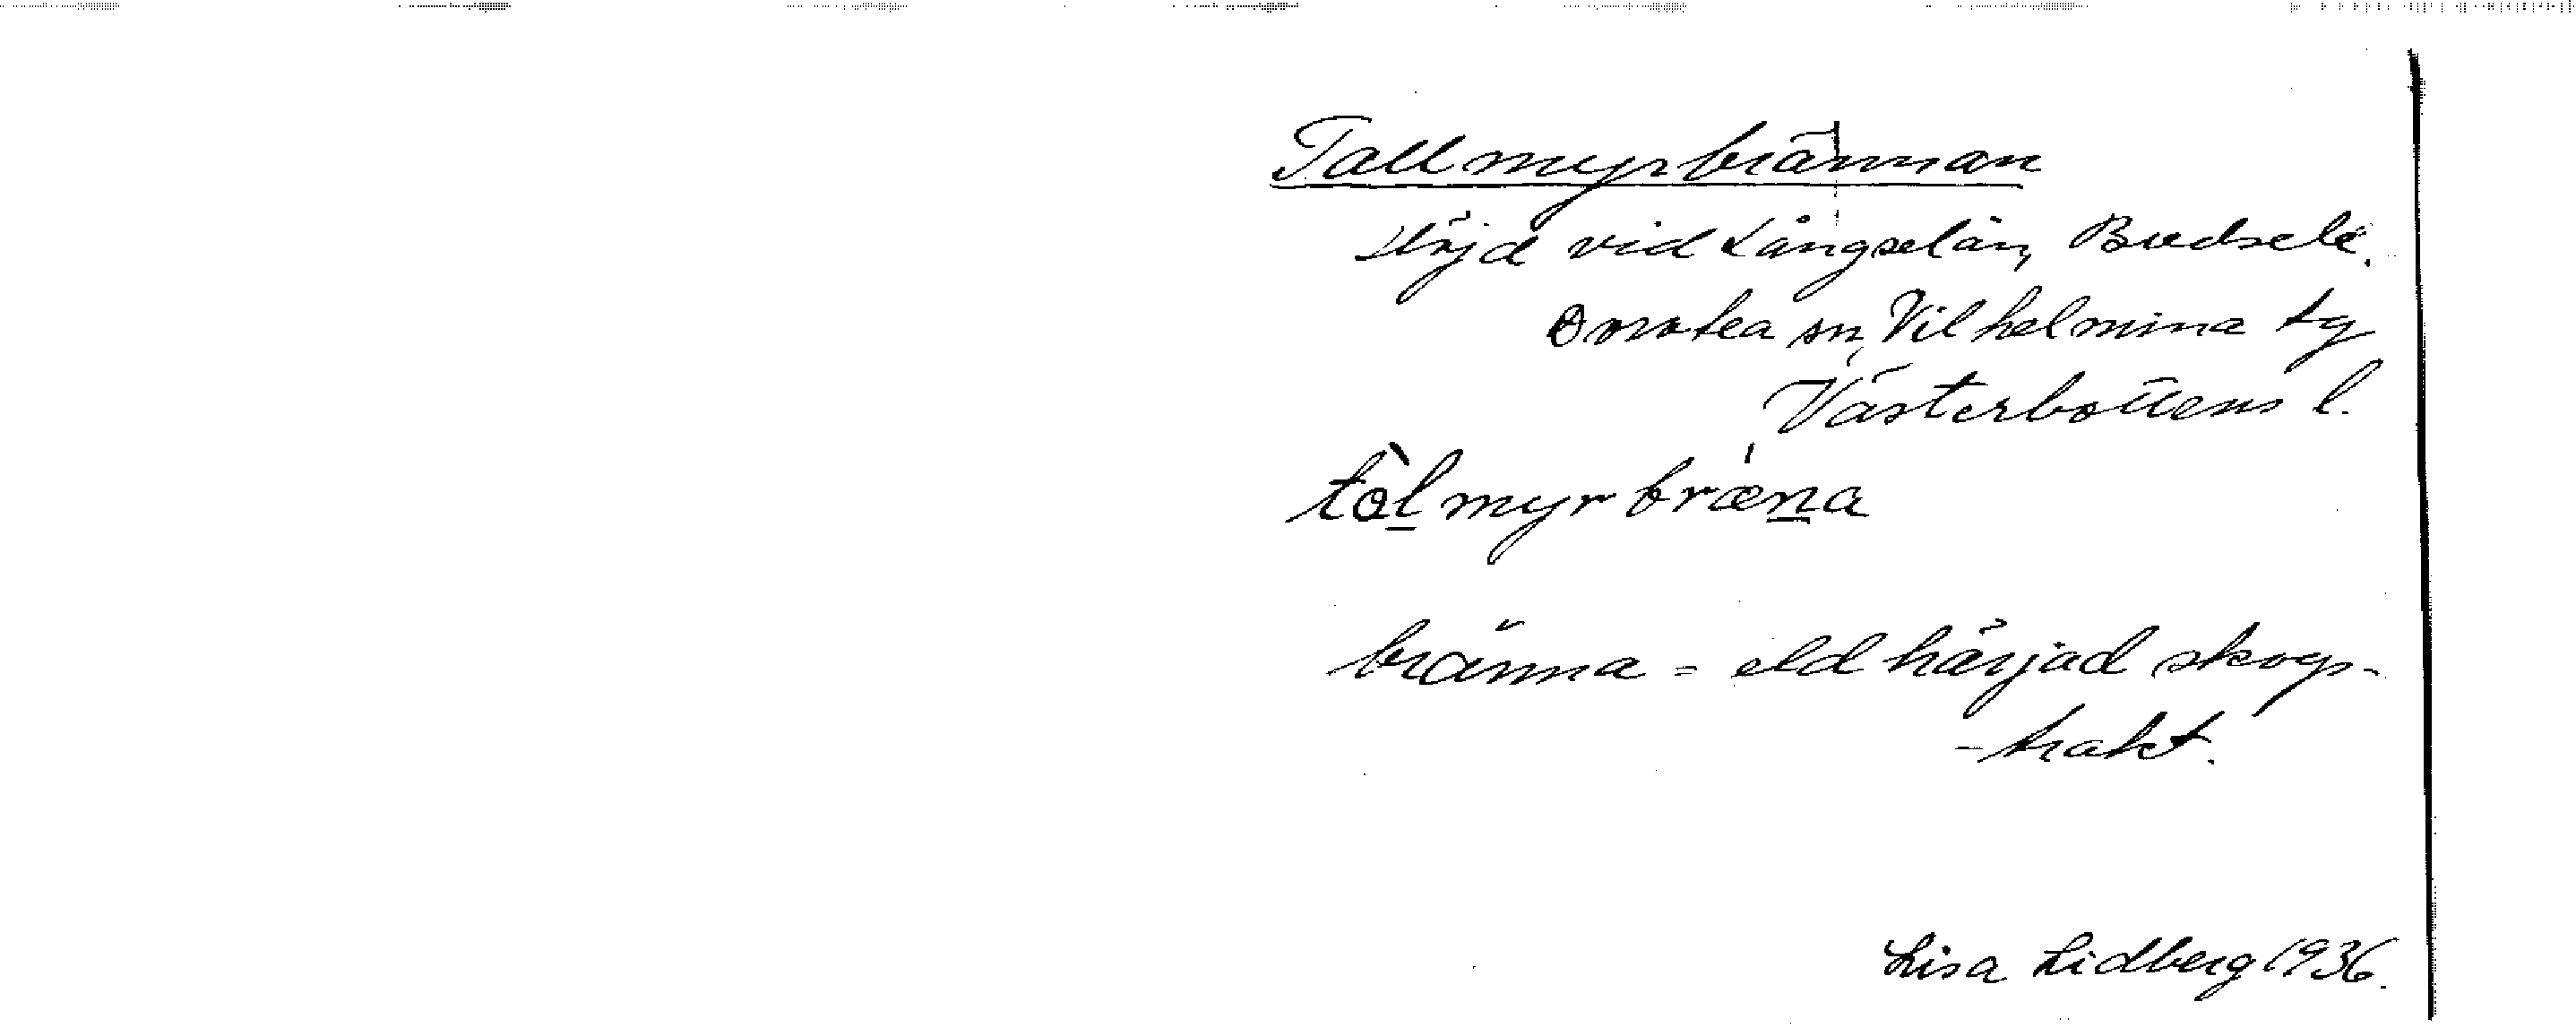 Tallmyrbrännan
Höjd vid Långselån, Bredsele.
Dorotea sn, Vilhelmina tg
Västerbottens l.
tòl̲myrbræn̲a
bränna = eldhärjad skogs-
-trakt.
Lisa Lidberg 1936.